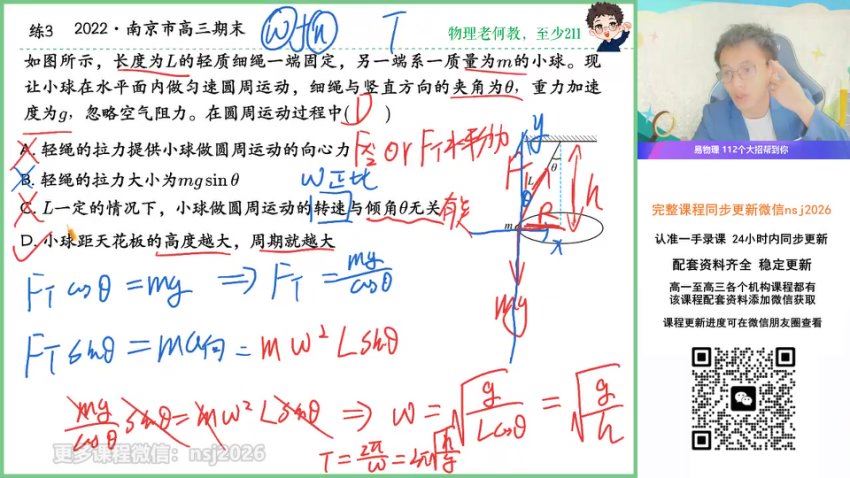 练3 2022·南京市高三期末 ω与n T
物理老何教，至少211
如图所示，长度为L的轻质细绳一端固定，另一端系一质量为m的小球。现
让小球在水平面内做匀速圆周运动，细绳与竖直方向的夹角为θ，重力加速
度为g，忽略空气阻力。在圆周运动过程中( D )
A. 轻绳的拉力提供小球做圆周运动的向心力 F合 or FT水平分力
B. 轻绳的拉力大小为mgsinθ ω正比
C. L一定的情况下，小球做圆周运动的转速与倾角θ无关 有关
D. 小球距天花板的高度越大，周期就越大
y
θ
L
FT
θ
h
R
m
x
mg
FT cosθ = mg ⇒ FT = mg/cosθ
FT sinθ = ma向 = mω²Lsinθ
mg/cosθ sinθ = mω²Lsinθ ⇒ ω = √(g/Lcosθ) = √(g/h)
T = 2π/ω = 2π√(h/g)
更多课程微信：nsj2026
易物理 112个大招帮到你
完整课程同步更新微信nsj2026
认准一手录课 24小时内同步更新
配套资料齐全 稳定更新
高一至高三各个机构课程都有
该课程配套资料添加微信获取
课程更新进度可在微信朋友圈查看